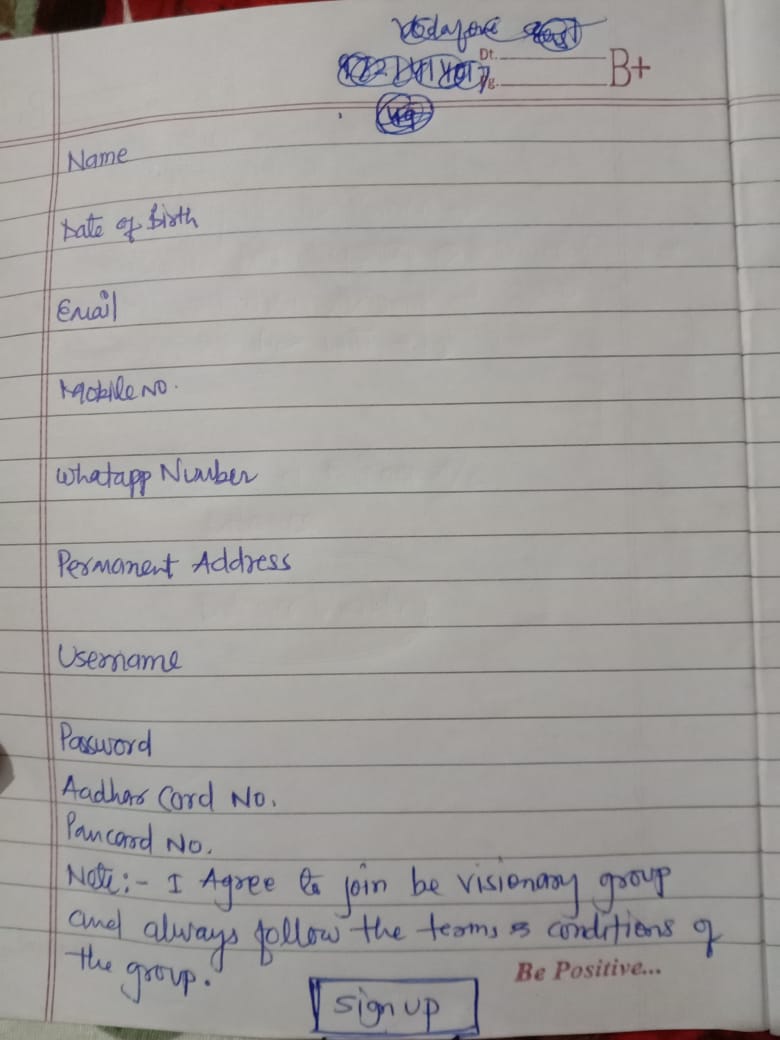 Vodafone
Dt.
Pg.
B+
Name
Date of Birth
Email
Mobile No.
Whatapp Number
Permanent Address
Username
Password
Aadhar Card No.
Pancard No.
Note:- I Agree to join be visionary group
and always follow the terms & conditions of
the group.
Be Positive...
Sign up